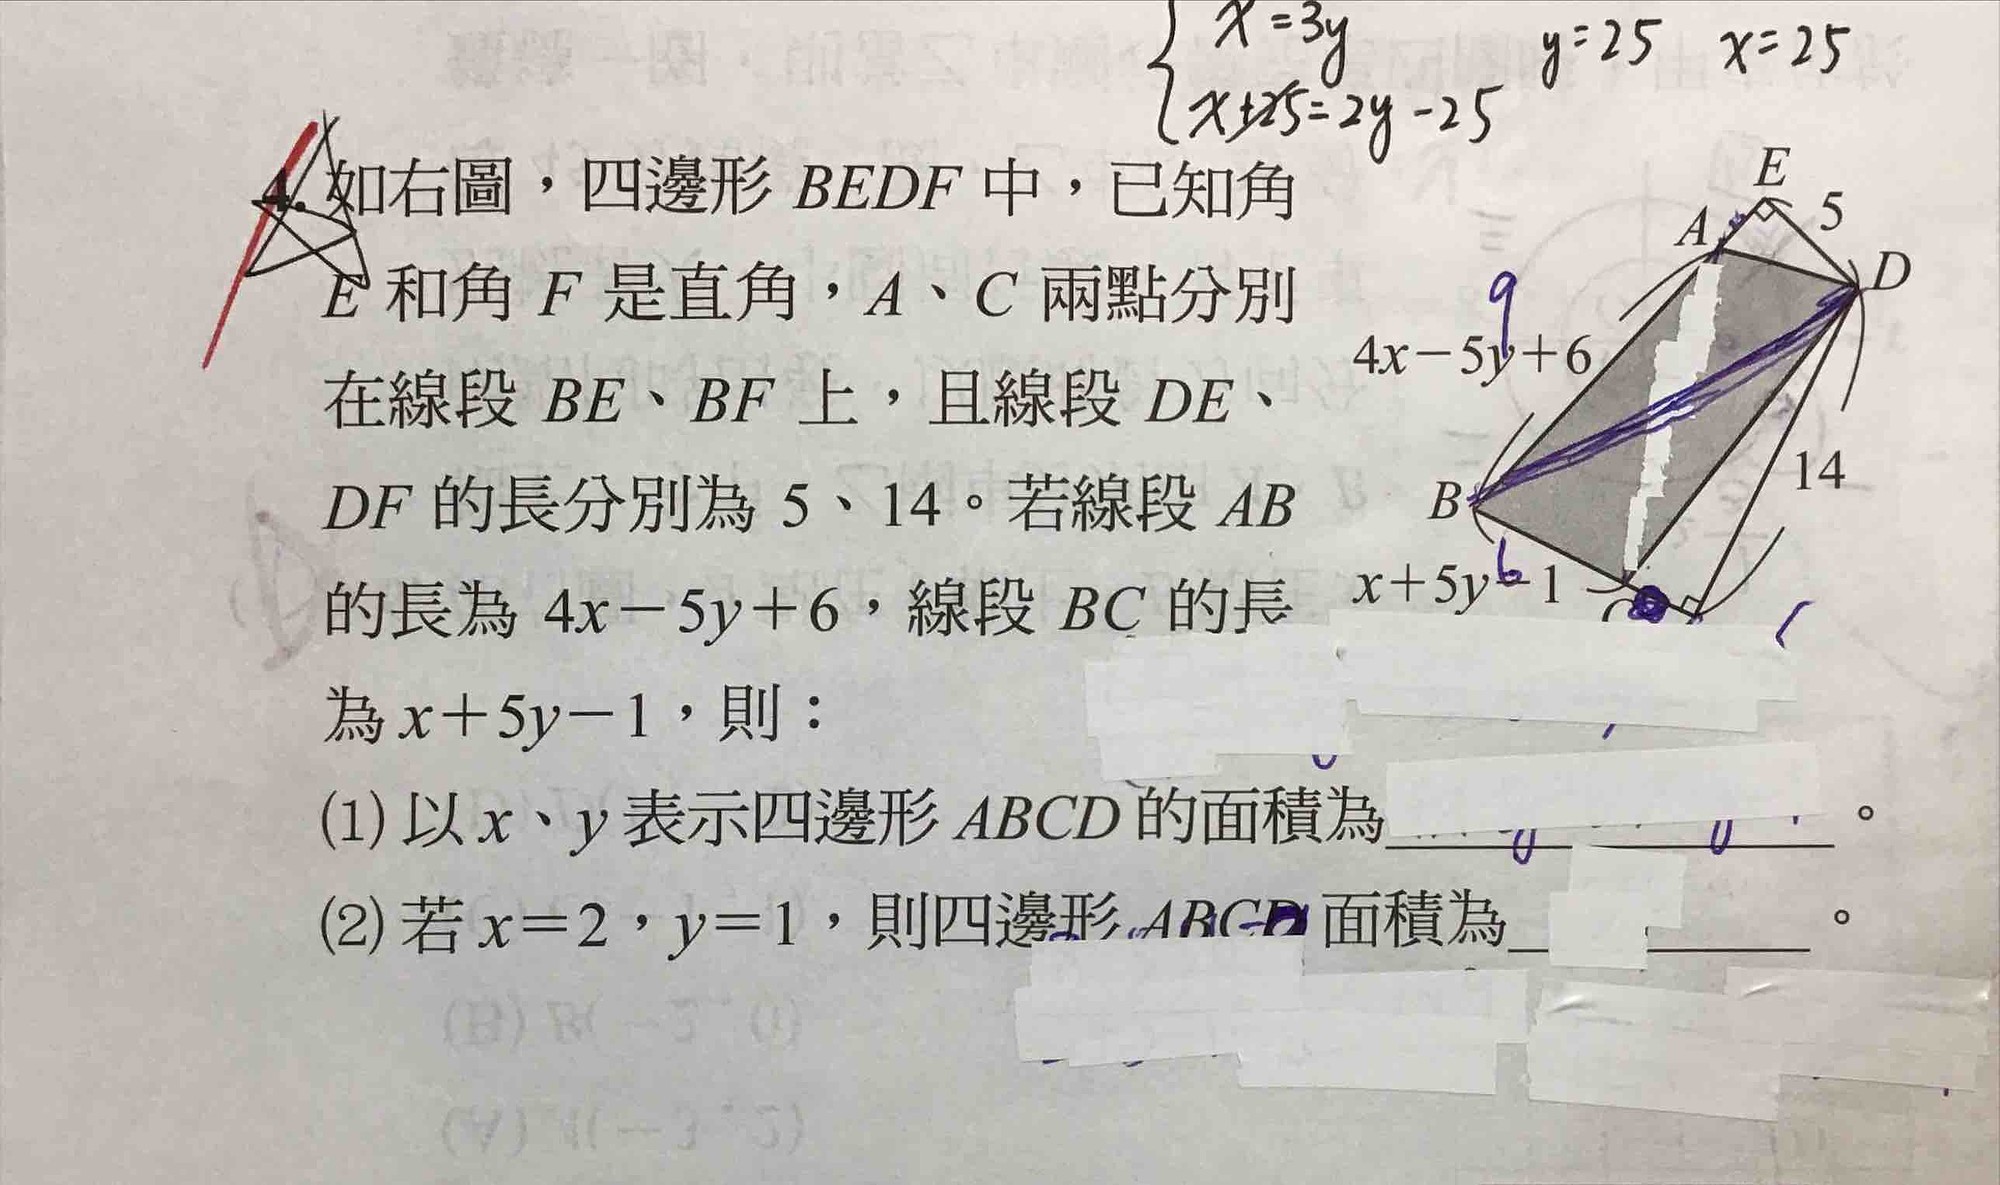 x=3y y=25 x=25
x+25=2y-25
4. 如右圖，四邊形 BEDF 中，已知角
E 和角 F 是直角，A、C 兩點分別
在線段 BE、BF 上，且線段 DE、
DF 的長分別為 5、14。若線段 AB
的長為 4x－5y＋6，線段 BC 的長
為 x＋5y－1，則：
E
5
A
D
9
4x－5y＋6
14
B
6
x＋5y－1
C
(1) 以 x、y 表示四邊形 ABCD 的面積為 。
(2) 若 x＝2，y＝1，則四邊形 ABCD 面積為 。
(B) B(－2 , 0)
(A) A(－3 , 2)